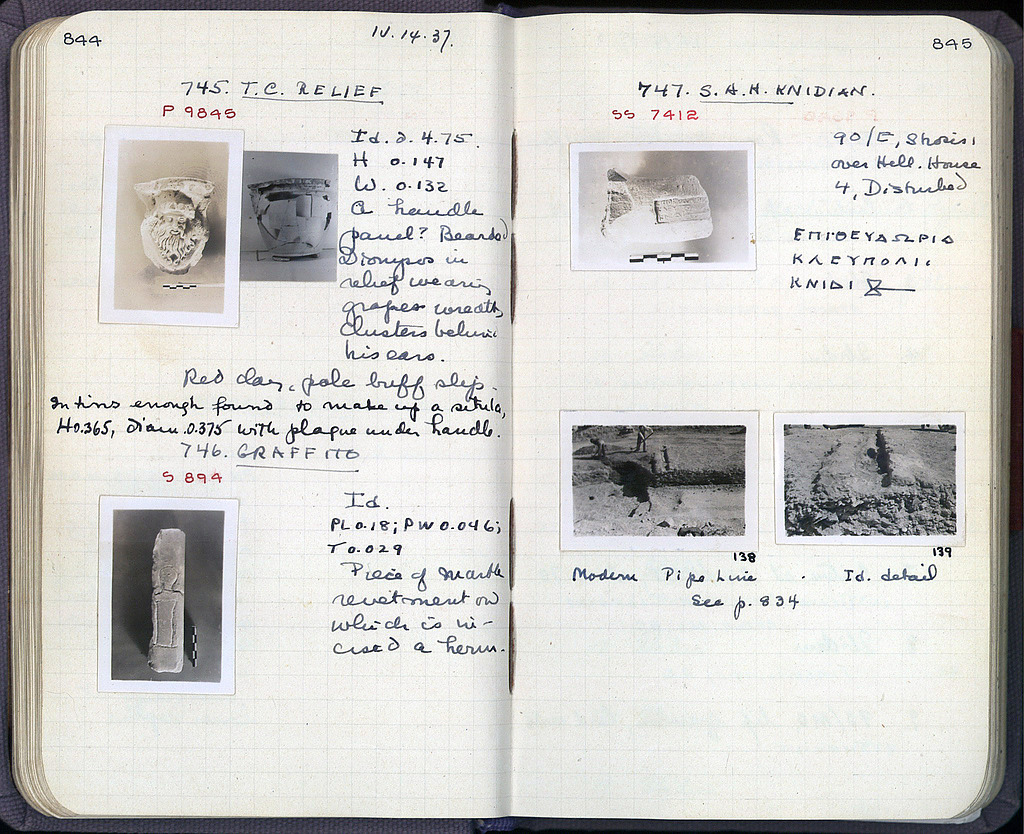 844
IV.14.37.
745. T.C. RELIEF
P 9845
Id. 2. 4.75.
H 0.147
W. 0.132
A handle
panel? Bearded
Dionysos in
relief wearing
grapes wreath,
clusters behind
his ears.
Red clay, pale buff slip.
In tins enough found to make up a situla,
H 0.365, diam. 0.375 with plaque under handle.
746. GRAFFITO
S 894
Id.
PL 0.18; PW 0.046;
T 0.029
Piece of marble
revetment on
which is in-
cised a herm.
845
747. S.A.H. KNIDIAN.
SS 7412
90/Ε,
over Hell. House
4, Disturbed
ΕΠΙΘΕΥΔΩΡΙΔ
ΚΛΕΥΠΟΛΙ
ΚΝΙΔΙ
138
139
Modern Pipe Line . Id. detail
See p. 834